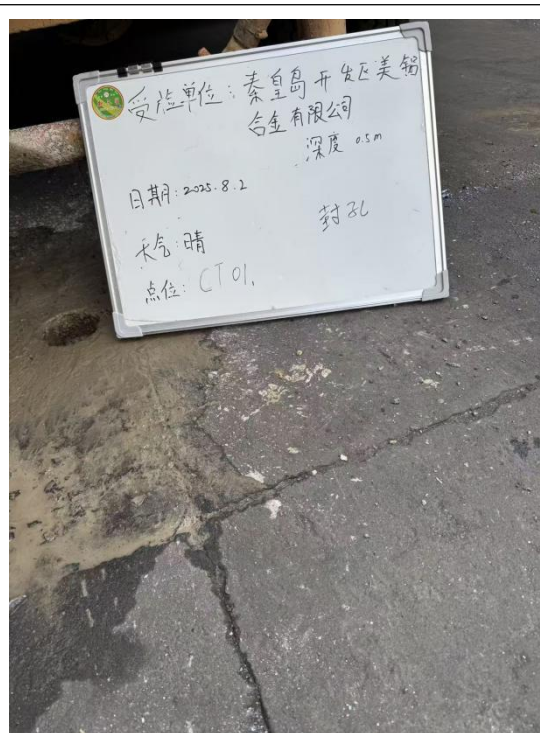 受检单位：秦皇岛开发区美铝
合金有限公司
深度 0.5m
日期：2025.8.2
封孔
天气：晴
点位：CT01.